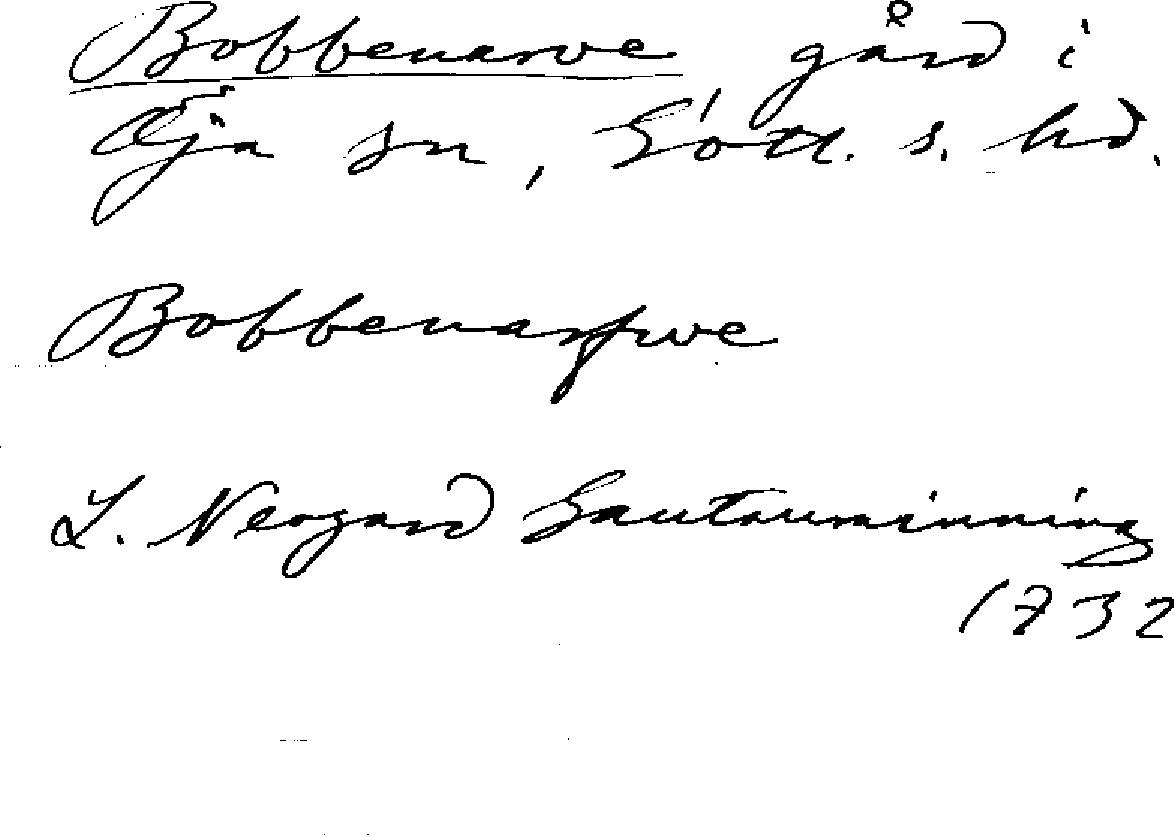 Bobbenarve gård i
Öja sn, Gotl. s. hd.
Bobbenarfwe
L. Neogard Gautauminning
1732